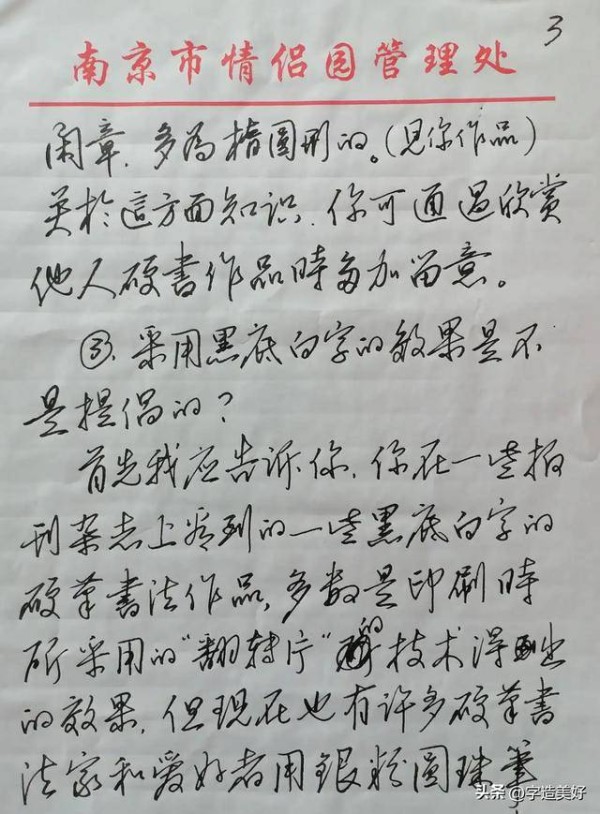 3
南京市情侣园管理处
闲章，多為楕圓形的。(见你作品)
关於這方面知识，你可通過欣赏
他人硬書作品時多加留意。
③、采用黑底白字的效果是不
是提倡的？
首先我应告诉你，你在一些报
刊杂志上看到的一些黑底白字的
硬筆書法作品，多数是印刷時
所采用的“翻转片”的技术得出
的效果，但现在也有许多硬筆書
法家和爱好者用銀粉圆珠筆
头条 @字造美好